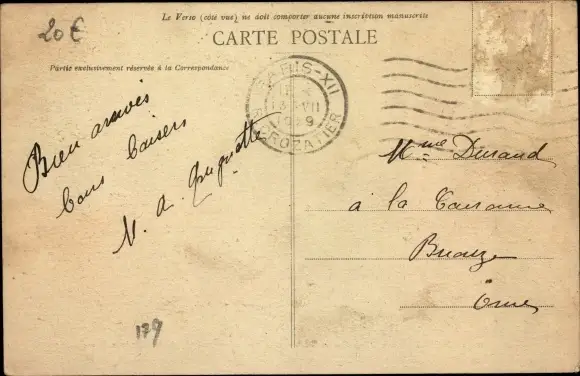 20€
Le Verso (côté vue) ne doit comporter aucune inscription manuscrite
CARTE POSTALE
Partie exclusivement réservée à la Correspondance
PARIS-XII
VII
R. CROZATIER
Bien arrivés
bons baisers
M. A.
Mme Durand
à la
Briouze
Orne
179